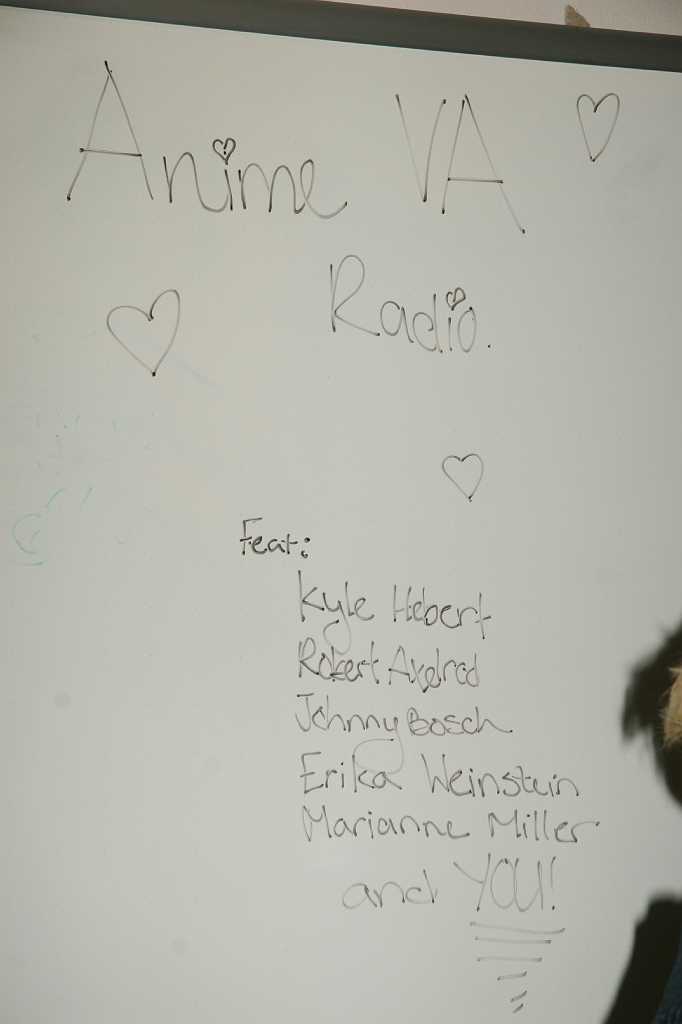 Anime VA
Radio.
Feat:
Kyle Hebert
Robert Axelrod
Johnny Bosch
Erika Weinstein
Marianne Miller
and YOU!